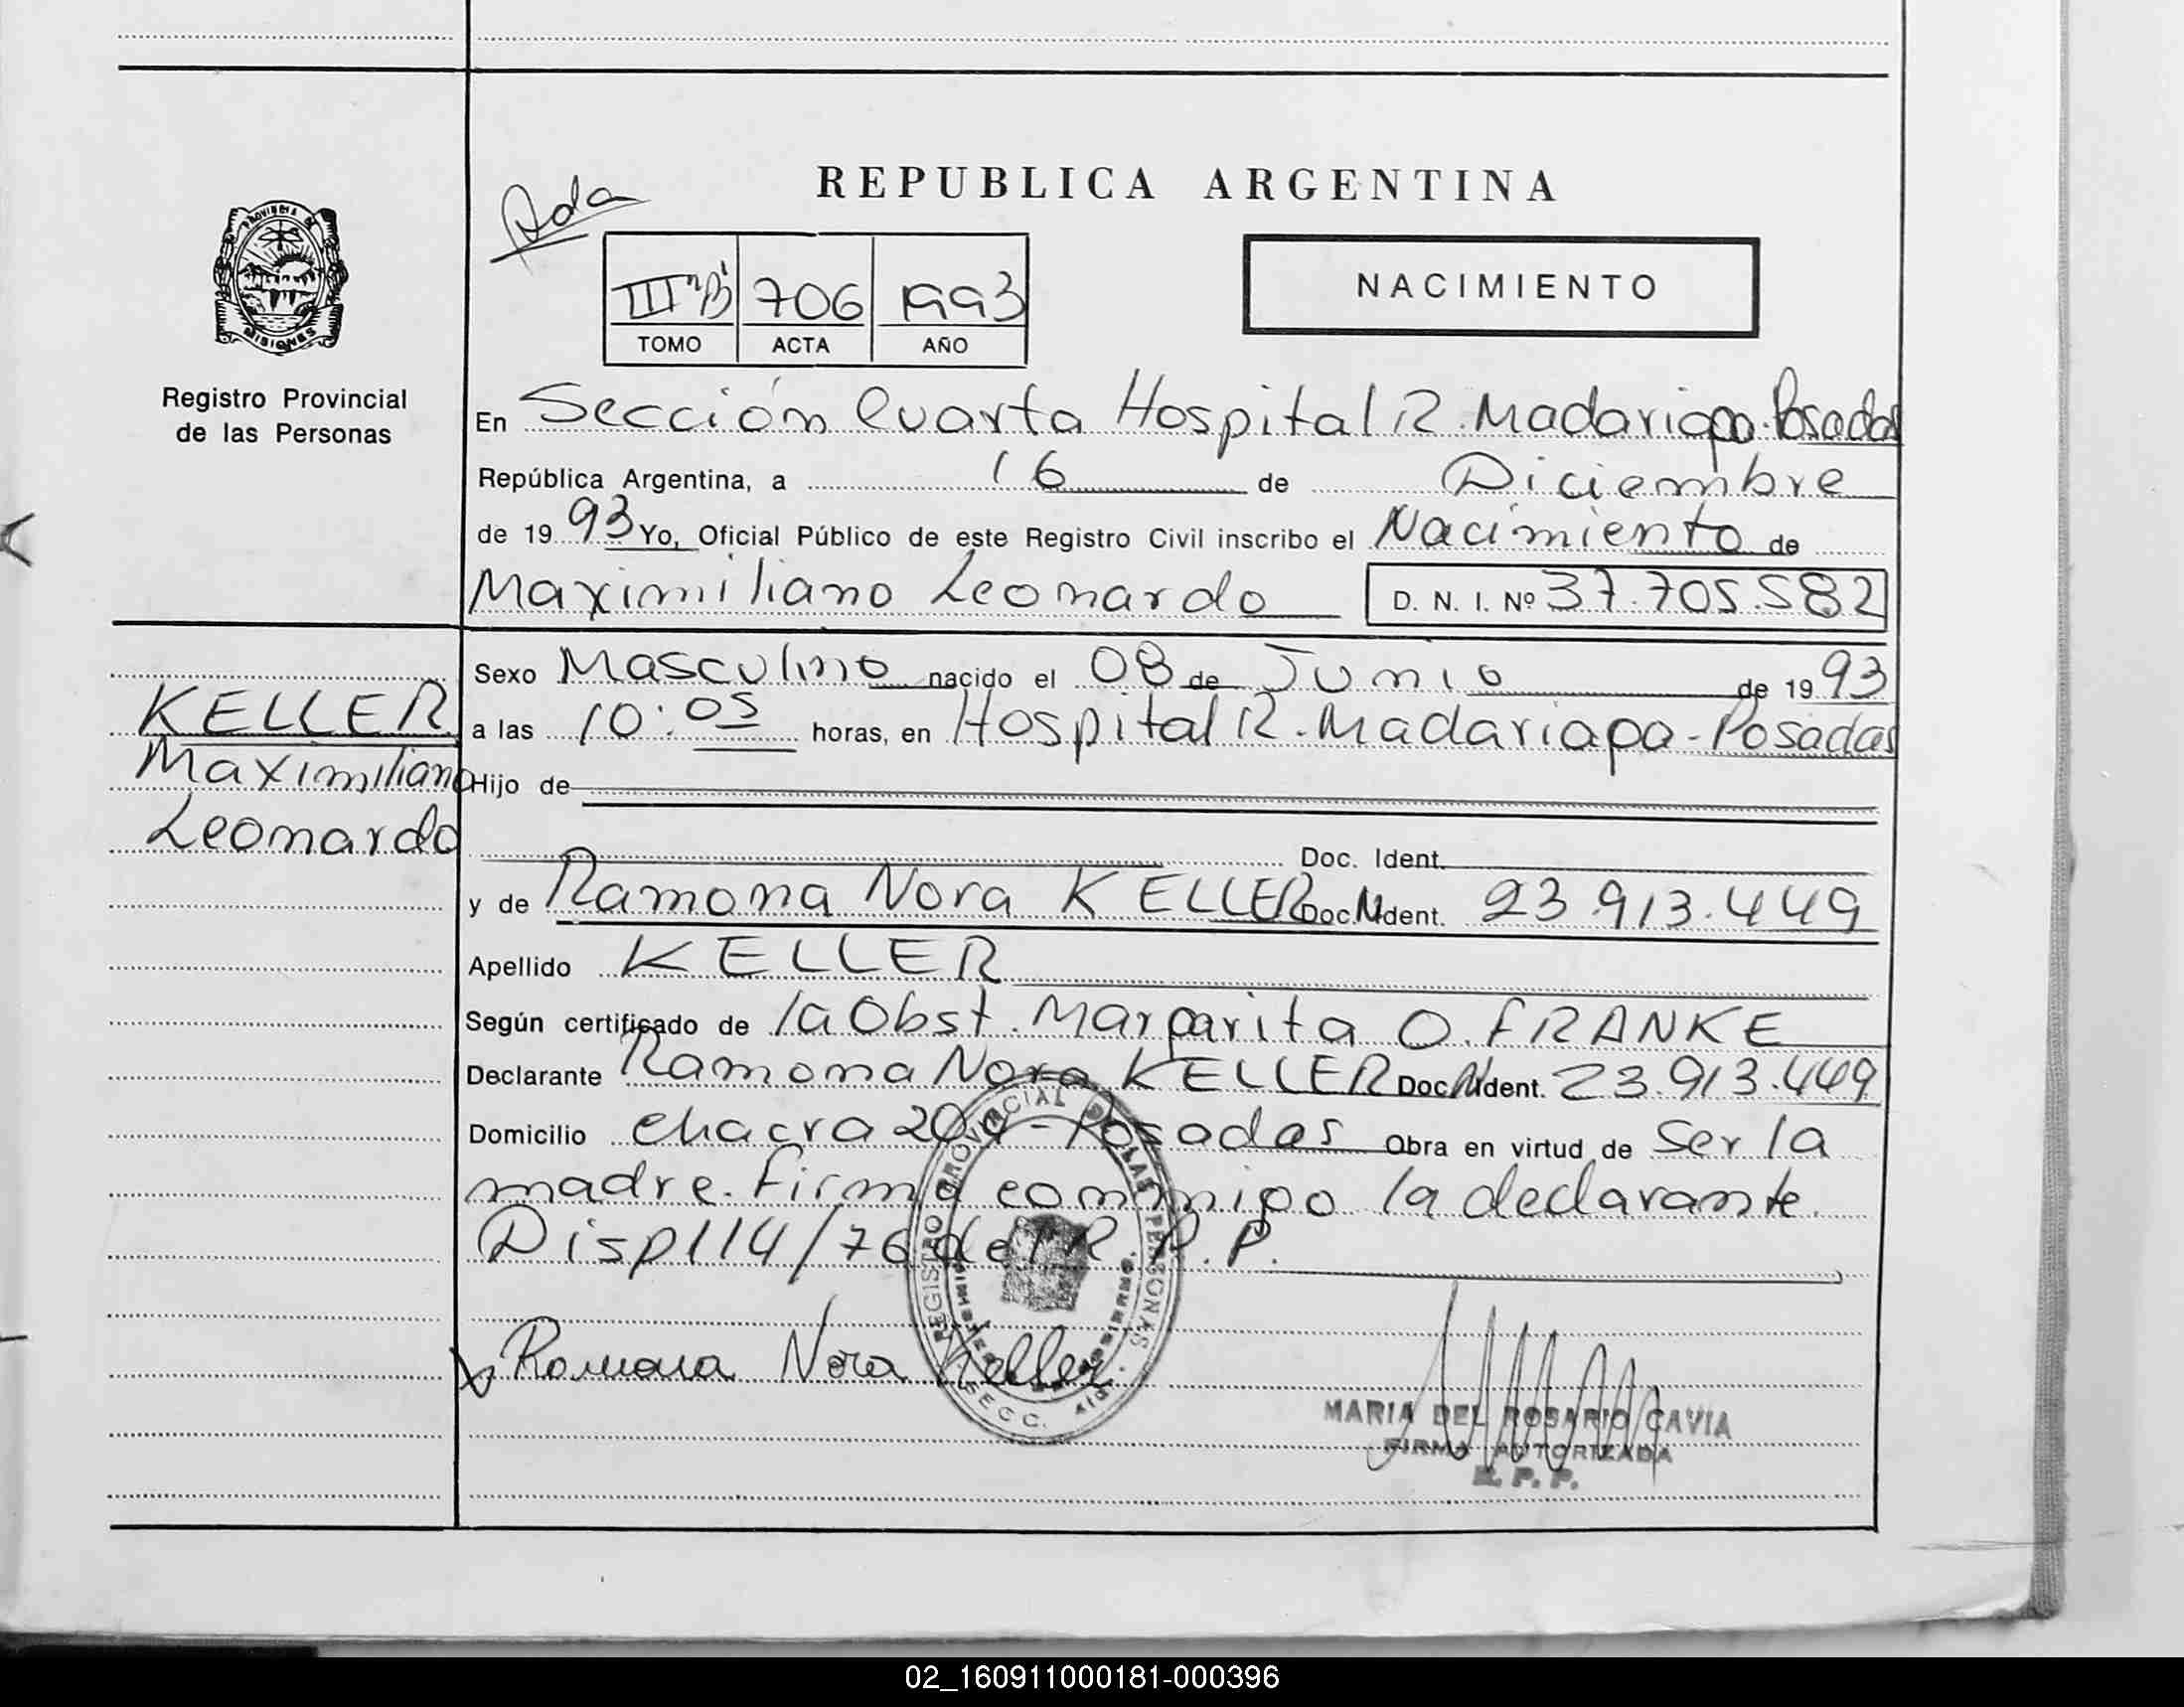 REPUBLICA ARGENTINA
PROVINCIA DE
MISIONES
Registro Provincial
de las Personas
Ada
III "B" 706 1993
TOMO ACTA AÑO
NACIMIENTO
En Sección Cuarta Hospital R. Madariaga-Posadas
República Argentina, a 16 de Diciembre
de 1993 Yo, Oficial Público de este Registro Civil inscribo el Nacimiento de
Maximiliano Leonardo D. N. I. Nº 37.705.582
KELLER
Maximiliano
Leonardo
Sexo Masculino nacido el 08 de Junio de 1993
a las 10:05 horas, en Hospital R. Madariaga-Posadas
Hijo de
Doc. Ident.
y de Ramona Nora KELLER Doc. Ident. 23.913.449
Apellido KELLER
Según certificado de la Obst. Margarita O. FRANKE
Declarante Ramona Nora KELLER Doc. Ident. 23.913.449
Domicilio chacra - Posadas Obra en virtud de Ser la
madre. Firma conmigo la declarante
Disp 114/76 del R.P.P.
Ramona Nora Keller
REGISTRO PROVINCIAL DE LAS PERSONAS
SECC.
MARIA DEL ROSARIO CAVIA
FIRMA AUTORIZADA
R. P. P.
02_160911000181-000396